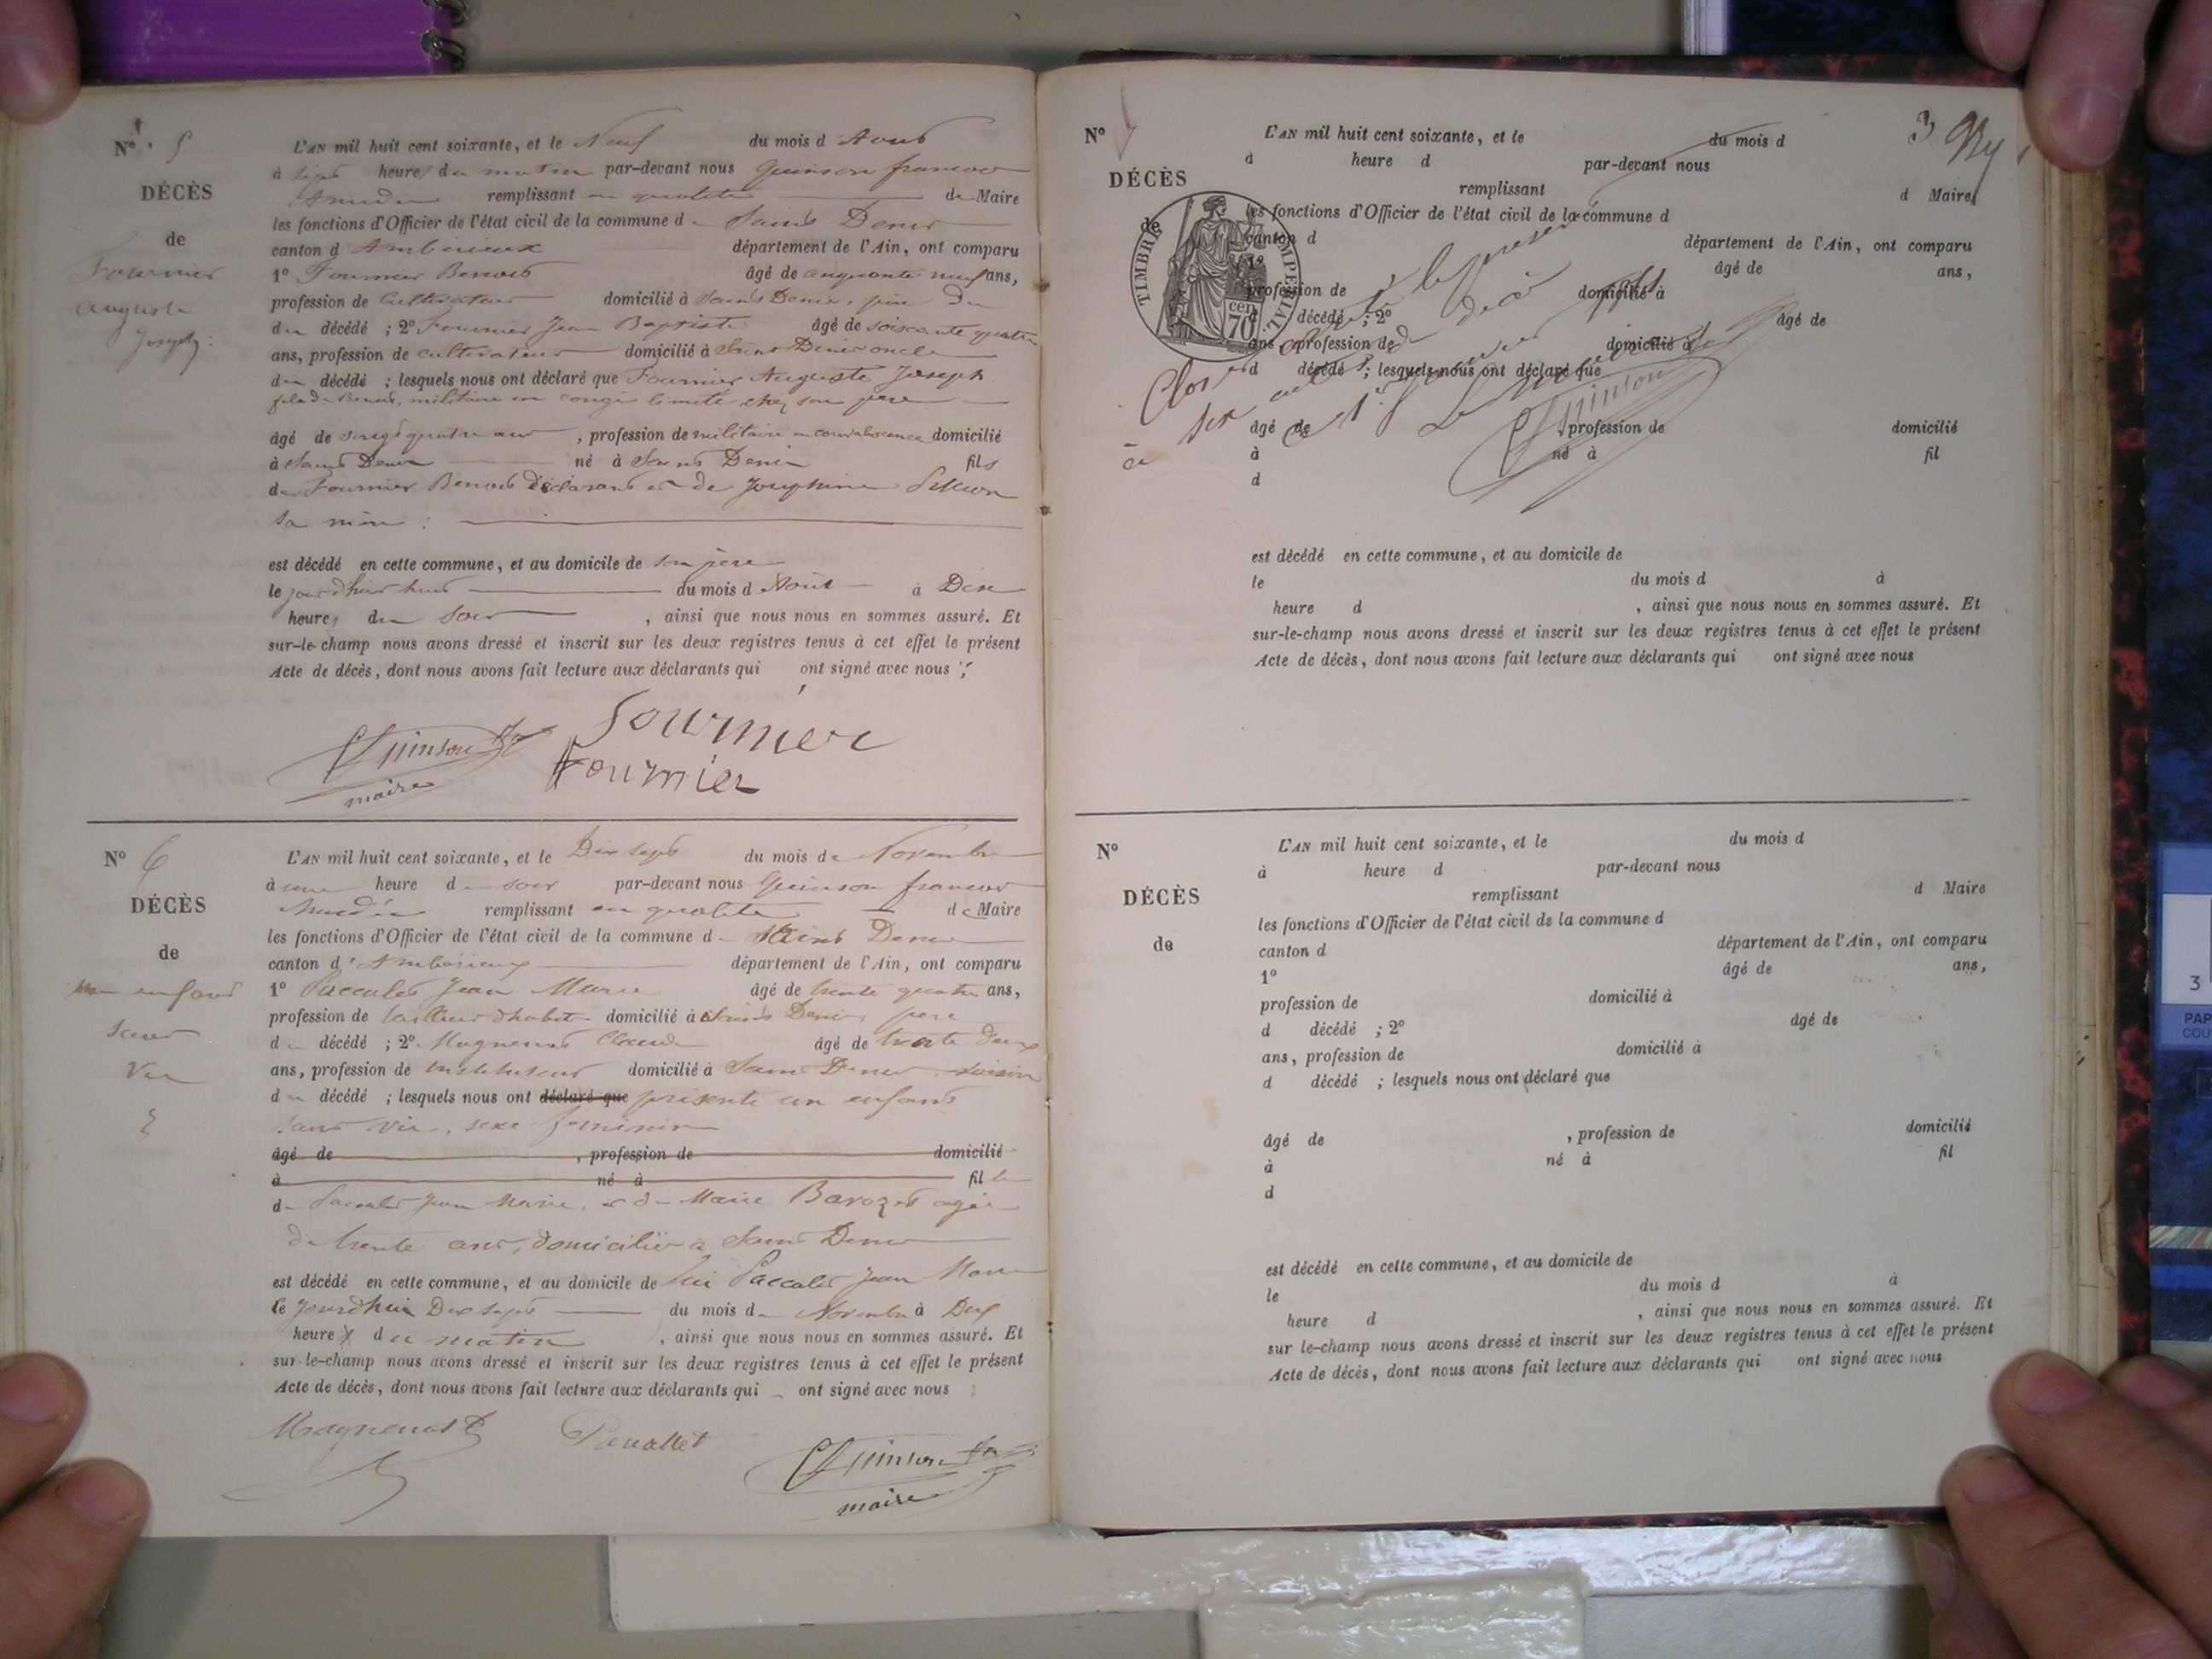 N° 5
DÉCÈS
de
Fournier
Auguste
Joseph
L'AN mil huit cent soixante, et le Neuf du mois d Aout
à sept heures du matin par-devant nous Quinson francois
Amédée remplissant en qualité de Maire
les fonctions d'Officier de l'état civil de la commune de Saint Denis
canton d'Ambérieux département de l'Ain, ont comparu
1° Fournier Benoit âgé de cinquante neuf ans,
profession de Cultivateur domicilié à Saint Denis, père du
du décédé ; 2° Fournier Jean Baptiste âgé de soixante quatre
ans, profession de cultivateur domicilié à Saint Denis oncle
du décédé ; lesquels nous ont déclaré que Fournier Auguste Joseph
fils de Benoit, militaire en congé limité chez son père
âgé de vingt quatre ans, profession de militaire en convalescence domicilié
à Saint Denis né à Saint Denis fils
de Fournier Benoit déclarant et de Joséphine
sa mère :
est décédé en cette commune, et au domicile de son père
le jourd'hier huit du mois d Aout à Dix
heures du soir, ainsi que nous nous en sommes assuré. Et
sur-le-champ nous avons dressé et inscrit sur les deux registres tenus à cet effet le présent
Acte de décès, dont nous avons fait lecture aux déclarants qui ont signé avec nous ;
Quinson Fournier
maire Fournier
N° 6
DÉCÈS
de
un enfant
sans
vie
L'AN mil huit cent soixante, et le Dix sept du mois de Novembre
à une heure du soir par-devant nous Quinson francois
Amédée remplissant en qualité de Maire
les fonctions d'Officier de l'état civil de la commune de Saint Denis
canton d'Ambérieux département de l'Ain, ont comparu
1° Paccalet Jean Marie âgé de trente quatre ans,
profession de tailleur d'habit domicilié à Saint Denis père
du décédé ; 2° Magnenot Claude âgé de trente deux
ans, profession de instituteur domicilié à Saint Denis voisin
du décédé ; lesquels nous ont déclaré que présenté un enfant
sans vie, sexe féminin
âgé de , profession de domicilié
à né à fille
de Paccalet Jean Marie, et de Marie Barozet agée
de trente ans, domiciliée à Saint Denis
est décédé en cette commune, et au domicile de lui Paccalet Jean Marie
le jourd'hui Dix sept du mois de Novembre à Dix
heure du matin, ainsi que nous nous en sommes assuré. Et
sur-le-champ nous avons dressé et inscrit sur les deux registres tenus à cet effet le présent
Acte de décès, dont nous avons fait lecture aux déclarants qui ont signé avec nous
Magnenot Paccallet Quinson
maire
N°
DÉCÈS
de
TIMBRE IMPERIAL
70 cen
3
L'AN mil huit cent soixante, et le du mois d
à heure d par-devant nous
remplissant d Maire
les fonctions d'Officier de l'état civil de la commune d
canton d département de l'Ain, ont comparu
1° âgé de ans,
profession de domicilié à
d décédé ; 2° âgé de
ans, profession de domicilié à
d décédé ; lesquels nous ont déclaré que
âgé de , profession de domicilié
à né à fil
d
Clos et arrêté le présent
à six actes de décès
ce 1er janvier
Le maire
Quinson
est décédé en cette commune, et au domicile de
le du mois d à
heure d , ainsi que nous nous en sommes assuré. Et
sur-le-champ nous avons dressé et inscrit sur les deux registres tenus à cet effet le présent
Acte de décès, dont nous avons fait lecture aux déclarants qui ont signé avec nous
N°
DÉCÈS
de
L'AN mil huit cent soixante, et le du mois d
à heure d par-devant nous
remplissant d Maire
les fonctions d'Officier de l'état civil de la commune d
canton d département de l'Ain, ont comparu
1° âgé de ans,
profession de domicilié à
d décédé ; 2° âgé de
ans, profession de domicilié à
d décédé ; lesquels nous ont déclaré que
âgé de , profession de domicilié
à né à fil
d
est décédé en cette commune, et au domicile de
le du mois d à
heure d , ainsi que nous nous en sommes assuré. Et
sur le-champ nous avons dressé et inscrit sur les deux registres tenus à cet effet le présent
Acte de décès, dont nous avons fait lecture aux déclarants qui ont signé avec nous
3
PAP
COU